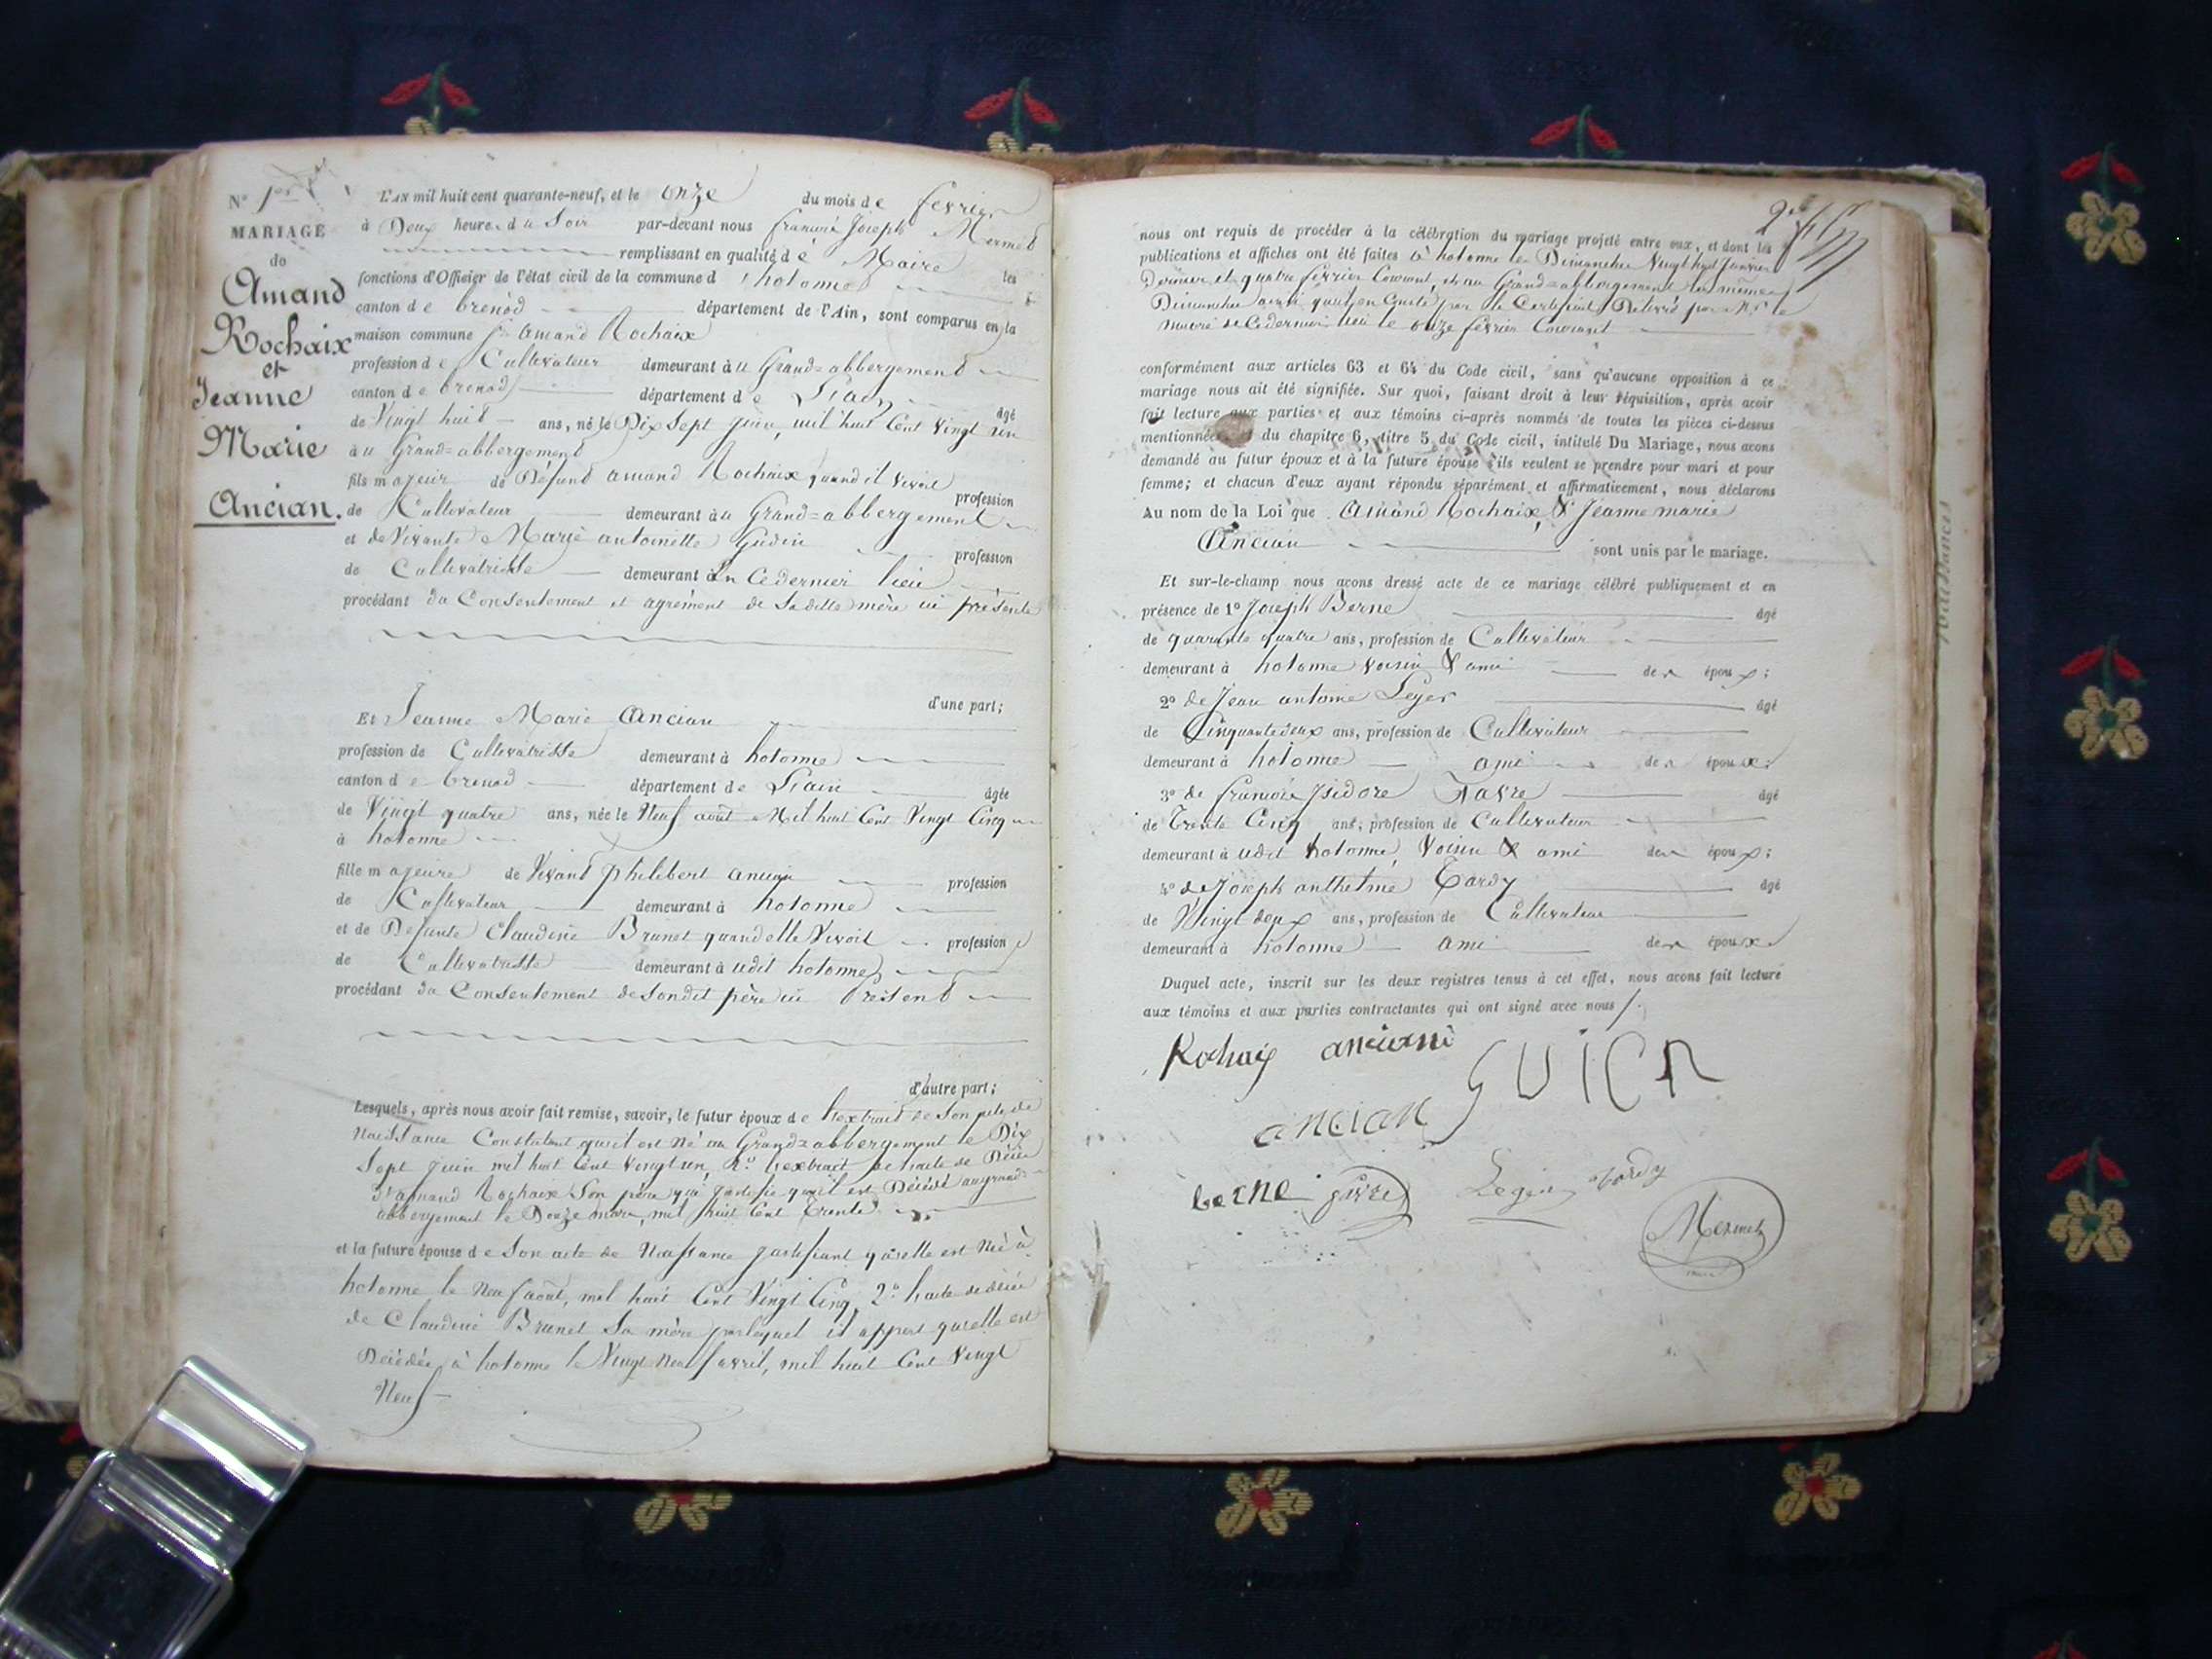 N° 1er
MARIAGE
de
Amand
Rochaix
et
Jeanne
Marie
Ancian.
L'AN mil huit cent quarante-neuf, et le onze du mois de fevrier
à Deux heures du Soir par-devant nous françois Joseph Mermet
remplissant en qualité de Maire les
fonctions d'Officier de l'état civil de la commune d'hotonne
canton de brenod département de l'Ain, sont comparus en la
maison commune Amand Rochaix
profession de Cultivateur demeurant au Grand=abbergement
canton de brenod département de L'ain âgé
de Vingt huit ans, né le Dix Sept juin, mil huit Cent Vingt un
au Grand=abbergement
fils majeur de Défunt amand Rochaix quand il vivoit profession
de Cultivateur demeurant au Grand=abbergement
et de Vivante Marie antoinette Gudin profession
de Cultivatrisse demeurant en Cedernier lieu
procédant du Consentement et agrément de Saditte mère ici présente
d'une part;
Et Jeanne Marie Ancian
profession de Cultivatrisse demeurant à hotonne
canton de brenod département de L'ain âgée
de Vingt quatre ans, née le Neuf août Mil huit Cent Vingt Cinq
à hotonne
fille majeure de Vivant philibert ancian profession
de Cultivateur demeurant à hotonne
et de Defunte Claudine Brunet quand elle Vivoit profession
de Cultivatrisse demeurant à udit hotonne
procédant du Consentement de Sondit père ici Présent
d'autre part;
Lesquels, après nous avoir fait remise, savoir, le futur époux de l'extrait de Son acte de
Naissance Constatant qu'il est Né au Grand=abbergement le Dix
Sept juin mil huit Cent Vingt un, 2° l'extrait de l'acte de Décès
d'amand Rochaix Son père qui justifie qu'il est Décédé au grand=
abbergement le Douze mars, mil huit Cent trente
et la future épouse de Son acte de Naissance justifiant qu'elle est Née à
hotonne le Neuf août, mil huit Cent Vingt Cinq, 2° l'acte de décès
de Claudine Brunet Sa mère par lequel il appert qu'elle est
Décédée à hotonne le Vingt Neuf avril, mil huit Cent Vingt
Neuf
nous ont requis de procéder à la célébration du mariage projeté entre eux, et dont les
publications et affiches ont été faites à hotonne les Dimanches Vingt huit Janvier
Dernier et quatre février Courant, et au Grand=abbergement les mêmes
Dimanches ainsi qu'il en Conste par le Certificat Délivré par Mr le
maire de Cedernier lieu le onze février Courant
conformément aux articles 63 et 64 du Code civil, sans qu'aucune opposition à ce
mariage nous ait été signifiée. Sur quoi, faisant droit à leur réquisition, après avoir
fait lecture aux parties et aux témoins ci-après nommés de toutes les pièces ci-dessus
mentionnées du chapitre 6, titre 5 du Code civil, intitulé Du Mariage, nous avons
demandé au futur époux et à la future épouse s'ils veulent se prendre pour mari et pour
femme; et chacun d'eux ayant répondu séparément et affirmativement, nous déclarons
Au nom de la Loi que Amand Rochaix, & Jeanne marie
Ancian sont unis par le mariage.
Et sur-le-champ nous avons dressé acte de ce mariage célébré publiquement et en
présence de 1° Joseph Berne âgé
de quarante quatre ans, profession de Cultivateur
demeurant à hotonne voisin & ami des époux;
2° de Jean antoine Leger âgé
de Cinquante deux ans, profession de Cultivateur
demeurant à hotonne ami des époux;
3° de françois Isidore Favre âgé
de Trente Cinq ans, profession de Cultivateur
demeurant à udit hotonne, Voisin & ami des époux;
4° de Joseph anthelme Tardy âgé
de Vingt deux ans, profession de Cultivateur
demeurant à hotonne ami des époux
Duquel acte, inscrit sur les deux registres tenus à cet effet, nous avons fait lecture
aux témoins et aux parties contractantes qui ont signé avec nous /.
Rochaix anciann
ancian
berne favre Leger tardy
Mermet